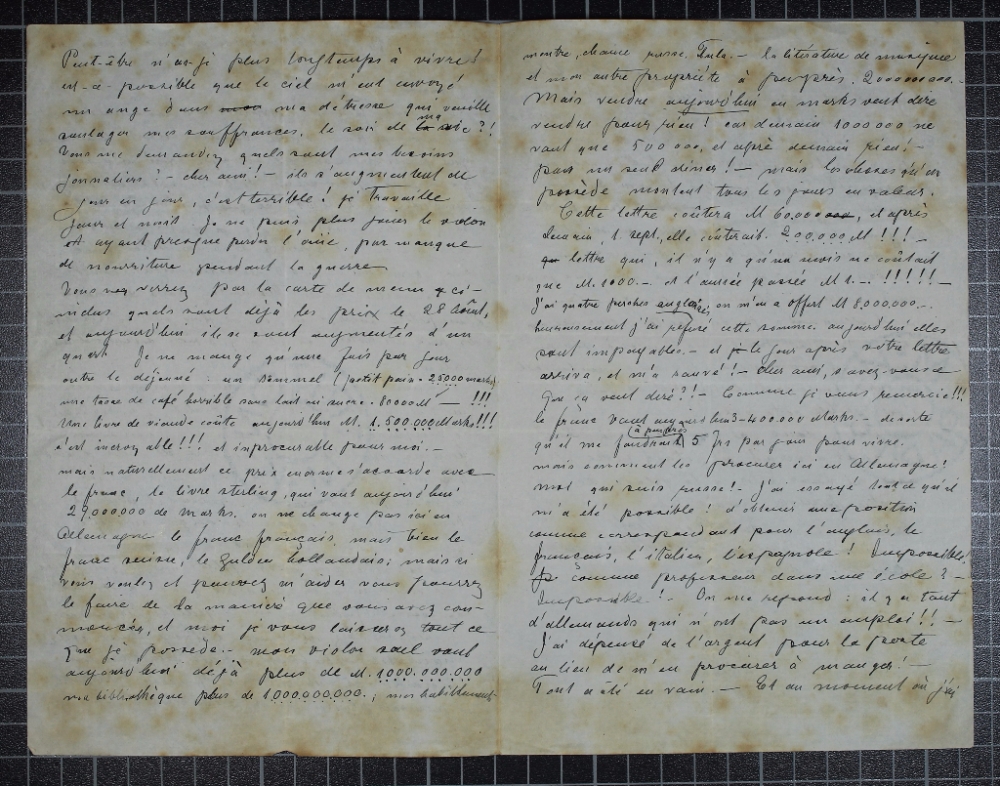 Peut-être n'ai-je plus longtemps à vivre!
est-ce possible que le ciel m'ent envoyé
un ange dans mon ma détresse qui veuille
soulager mes souffrances, le soir de ma la vie?!
Vous me demandez quels sont mes besoins
jonnaliers? - cher ami! - ils s'augmentent de
jour en jour, c'est terrible! je travaille
jour et nuit. Je ne puis plus jouer le violon
et ayant presque perdu l'ouïe, par manque
de nourriture pendant la guerre
Vous verrez par la carte de menu ci-
inclus quels sont déjà les prix le 28 Août,
et aujourd'hui ils se sont augmentés d'un
quart. Je ne mange qu'une fois par jour
outre le déjeuné: un semmel (petit pain - 25000 marks)
une tasse de café horrible sans lait ni sucre. 80000 M - !!!
Une livre de viande coûte aujourd'hui M. 1.500.000 Marks!!!
c'est incroyable!!! et inprocurable pour moi. -
mais naturellement ce prix enorme s'accorde avec
le franc, le livre sterling, qui vaut aujourd'hui
29.000.000 de marks. on ne change pas ici en
Allemagne le franc français, mais bien le
franc suisse, le Gulden hollandais; mais si
vous voulez et pouvez m'aider vous pourrez
le faire de la manière que vous avez com-
mencée, et moi je vous laisserez tout ce
que je possède. - mon violon seul vaut
aujourd'hui déjà plus de M. 1000.000.000
ma bibliothèque plus de 1.000.000.000.; mes habillements
montre, chaine russe Tula. - la litérature de musique
et mon autre propriété à peu près. 2000000000. -
Mais vendre aujourd'hui en marks veut dire
vendre pour rien! car demain 1000000 ne
vaut que 500000, et après demain rien! -
pour un seul diner! - mais les choses qu'on
possède montent tous les jours en valeur.
Cette lettre coûtera M 60.000, et après
demain, 1. sept., elle coûterait. 200.000 M!!! -
lettre qui, il n'y a qu'un mois ne coûtait
que M. 1000. - et l'année passée M 1. - !!!!!!
J'ai quatre perches anglaises, on m'en a offert M 8.000.000 -.
heureusement j'ai refusé cette somme. aujourd'hui elles
sont impayables. - et le jour après votre lettre
arriva, et m'a sauvé! - cher ami, savez-vous ce
que ça veut dire?! - Comme je vous remercie!!!
le franc vaut aujourd'hui 3-400000 Marks. - de sorte
qu'il me faudrait (à peu près) 5 frs par jour pour vivre.
mais comment les procurer ici en Allemagne!
moi qui suis russe! - J'ai essayé tout ce qu'il
m'a été possible! d'obtenir une position
comme correspondant pour l'anglais, le
français, l'italien, l'espagnole! Impossible!
comme professeur dans une école? -
Impossible! - On me repond: il y a tant
d'allemands qui n'ont pas un emploi!! -
J'ai dépensé de l'argent pour la poste
au lieu de m'en procurer à manger! -
Tout a été en vain. - Et au moment où j'ai